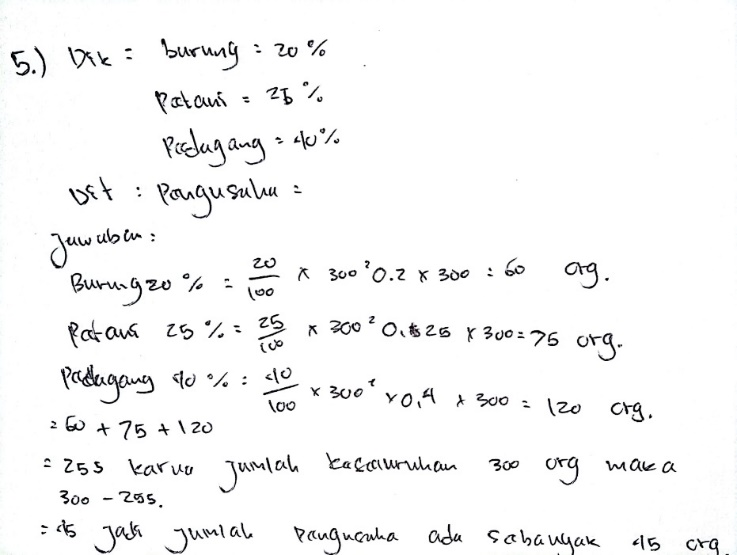 5.) Dik = burung = 20 %
Petani = 25 %
Pedagang = 40%
Dit : Pengusaha =
Jawaban :
Burung 20 % = 20/100 x 300 = 0.2 x 300 = 60 org.
Petani 25 % = 25/100 x 300 = 0,25 x 300 = 75 org.
Pedagang 40 % = 40/100 x 300 = x 0,4 x 300 = 120 org.
= 60 + 75 + 120
= 255 karna jumlah keseluruhan 300 org maka
300 - 255.
= 45 jadi jumlah Pengusaha ada sebanyak 45 org.